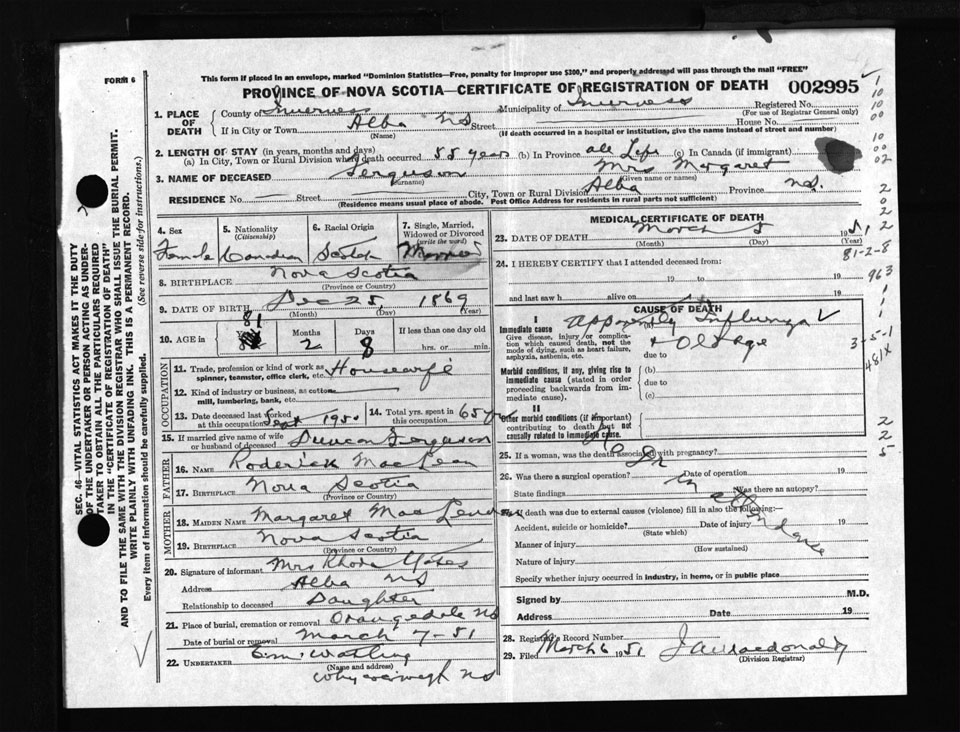 FORM 6
This form if placed in an envelope, marked "Dominion Statistics—Free, penalty for improper use $300," and properly addressed will pass through the mail "FREE"
PROVINCE OF NOVA SCOTIA—CERTIFICATE OF REGISTRATION OF DEATH 002995
1. PLACE OF DEATH
County of Inverness Municipality of Inverness Registered No.
(For use of Registrar General only)
If in City or Town Alba NS Street House No.
(Name) (If death occurred in a hospital or institution, give the name instead of street and number)
2. LENGTH OF STAY (in years, months and days)
(a) In City, Town or Rural Division where death occurred 55 years (b) In Province all Life (c) In Canada (if immigrant)
3. NAME OF DECEASED Ferguson Mrs Margaret
(Surname) (Given name or names)
RESIDENCE No. Street City, Town or Rural Division Alba Province NS.
(Residence means usual place of abode. Post Office Address for residents in rural parts not sufficient)
4. Sex Female
5. Nationality (Citizenship) Canadian
6. Racial Origin Scotch
7. Single, Married, Widowed or Divorced (write the word) Married
8. BIRTHPLACE Nova Scotia
(Province or Country)
9. DATE OF BIRTH Dec 25 1869
(Month) (Day) (Year)
10. AGE 81 Years Months 2 Days 8 If less than one day old
hrs. or min.
OCCUPATION
11. Trade, profession or kind of work as spinner, teamster, office clerk, etc. Housewife
12. Kind of industry or business, as cotton mill, lumbering, bank, etc.
13. Date deceased last worked at this occupation Sept 1950
14. Total yrs. spent in this occupation 65 yrs
15. If married give name of wife or husband of deceased Duncan Ferguson
FATHER
16. NAME Roderick MacLean
17. BIRTHPLACE Nova Scotia
(Province or Country)
MOTHER
18. MAIDEN NAME Margaret MacLennan
19. BIRTHPLACE Nova Scotia
(Province or Country)
20. Signature of informant Mrs Rhoda
Address Alba NS
Relationship to deceased Daughter
21. Place of burial, cremation or removal Orangedale NS
Date of burial or removal March 7-51
22. UNDERTAKER
(Name and address)
Whycocomagh NS
MEDICAL CERTIFICATE OF DEATH
23. DATE OF DEATH March 5 1951
(Month) (Day) (Year)
24. I HEREBY CERTIFY that I attended deceased from:
19 to 19
and last saw h alive on 19
CAUSE OF DEATH
I
Immediate cause
Give disease, injury or complication which caused death, not the mode of dying, such as heart failure, asphyxia, asthenia, etc.
Apparently Influenza
+ Old Age
due to
Morbid conditions, if any, giving rise to immediate cause (stated in order proceeding backwards from immediate cause).
(b)
due to
(c)
II
Other morbid conditions (if important) contributing to death but not causally related to immediate cause.
25. If a woman, was the death associated with pregnancy?
26. Was there a surgical operation? Date of operation 19
State findings Was there an autopsy?
No Dr in attendance
27. If death was due to external causes (violence) fill in also the following:—
Accident, suicide or homicide? Date of injury 19
(State which)
Manner of injury
(How sustained)
Nature of injury
Specify whether injury occurred in industry, in home, or in public place
Signed by M.D.
Address Date 19
28. Registrar's Record Number
29. Filed March 6 1951 J A Macdonald
(Division Registrar)
81-2-8
963
3-5-1
481X
SEC. 46—VITAL STATISTICS ACT MAKES IT THE DUTY
OF THE UNDERTAKER OR PERSON ACTING AS UNDER-
TAKER TO OBTAIN ALL THE PARTICULARS REQUIRED
IN THE "CERTIFICATE OF REGISTRATION OF DEATH"
AND TO FILE THE SAME WITH THE DIVISION REGISTRAR WHO SHALL ISSUE THE BURIAL PERMIT.
WRITE PLAINLY WITH UNFADING INK. THIS IS A PERMANENT RECORD.
Every item of information should be carefully supplied. (See reverse side for instructions.)